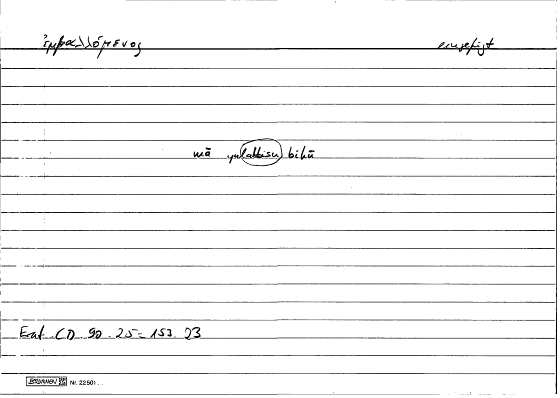 ἐμβαλλόμενος eingefügt
mā yulabbisu bihū
Erat CD 90.25 = 153.23
BRUNNEN Nr. 22501